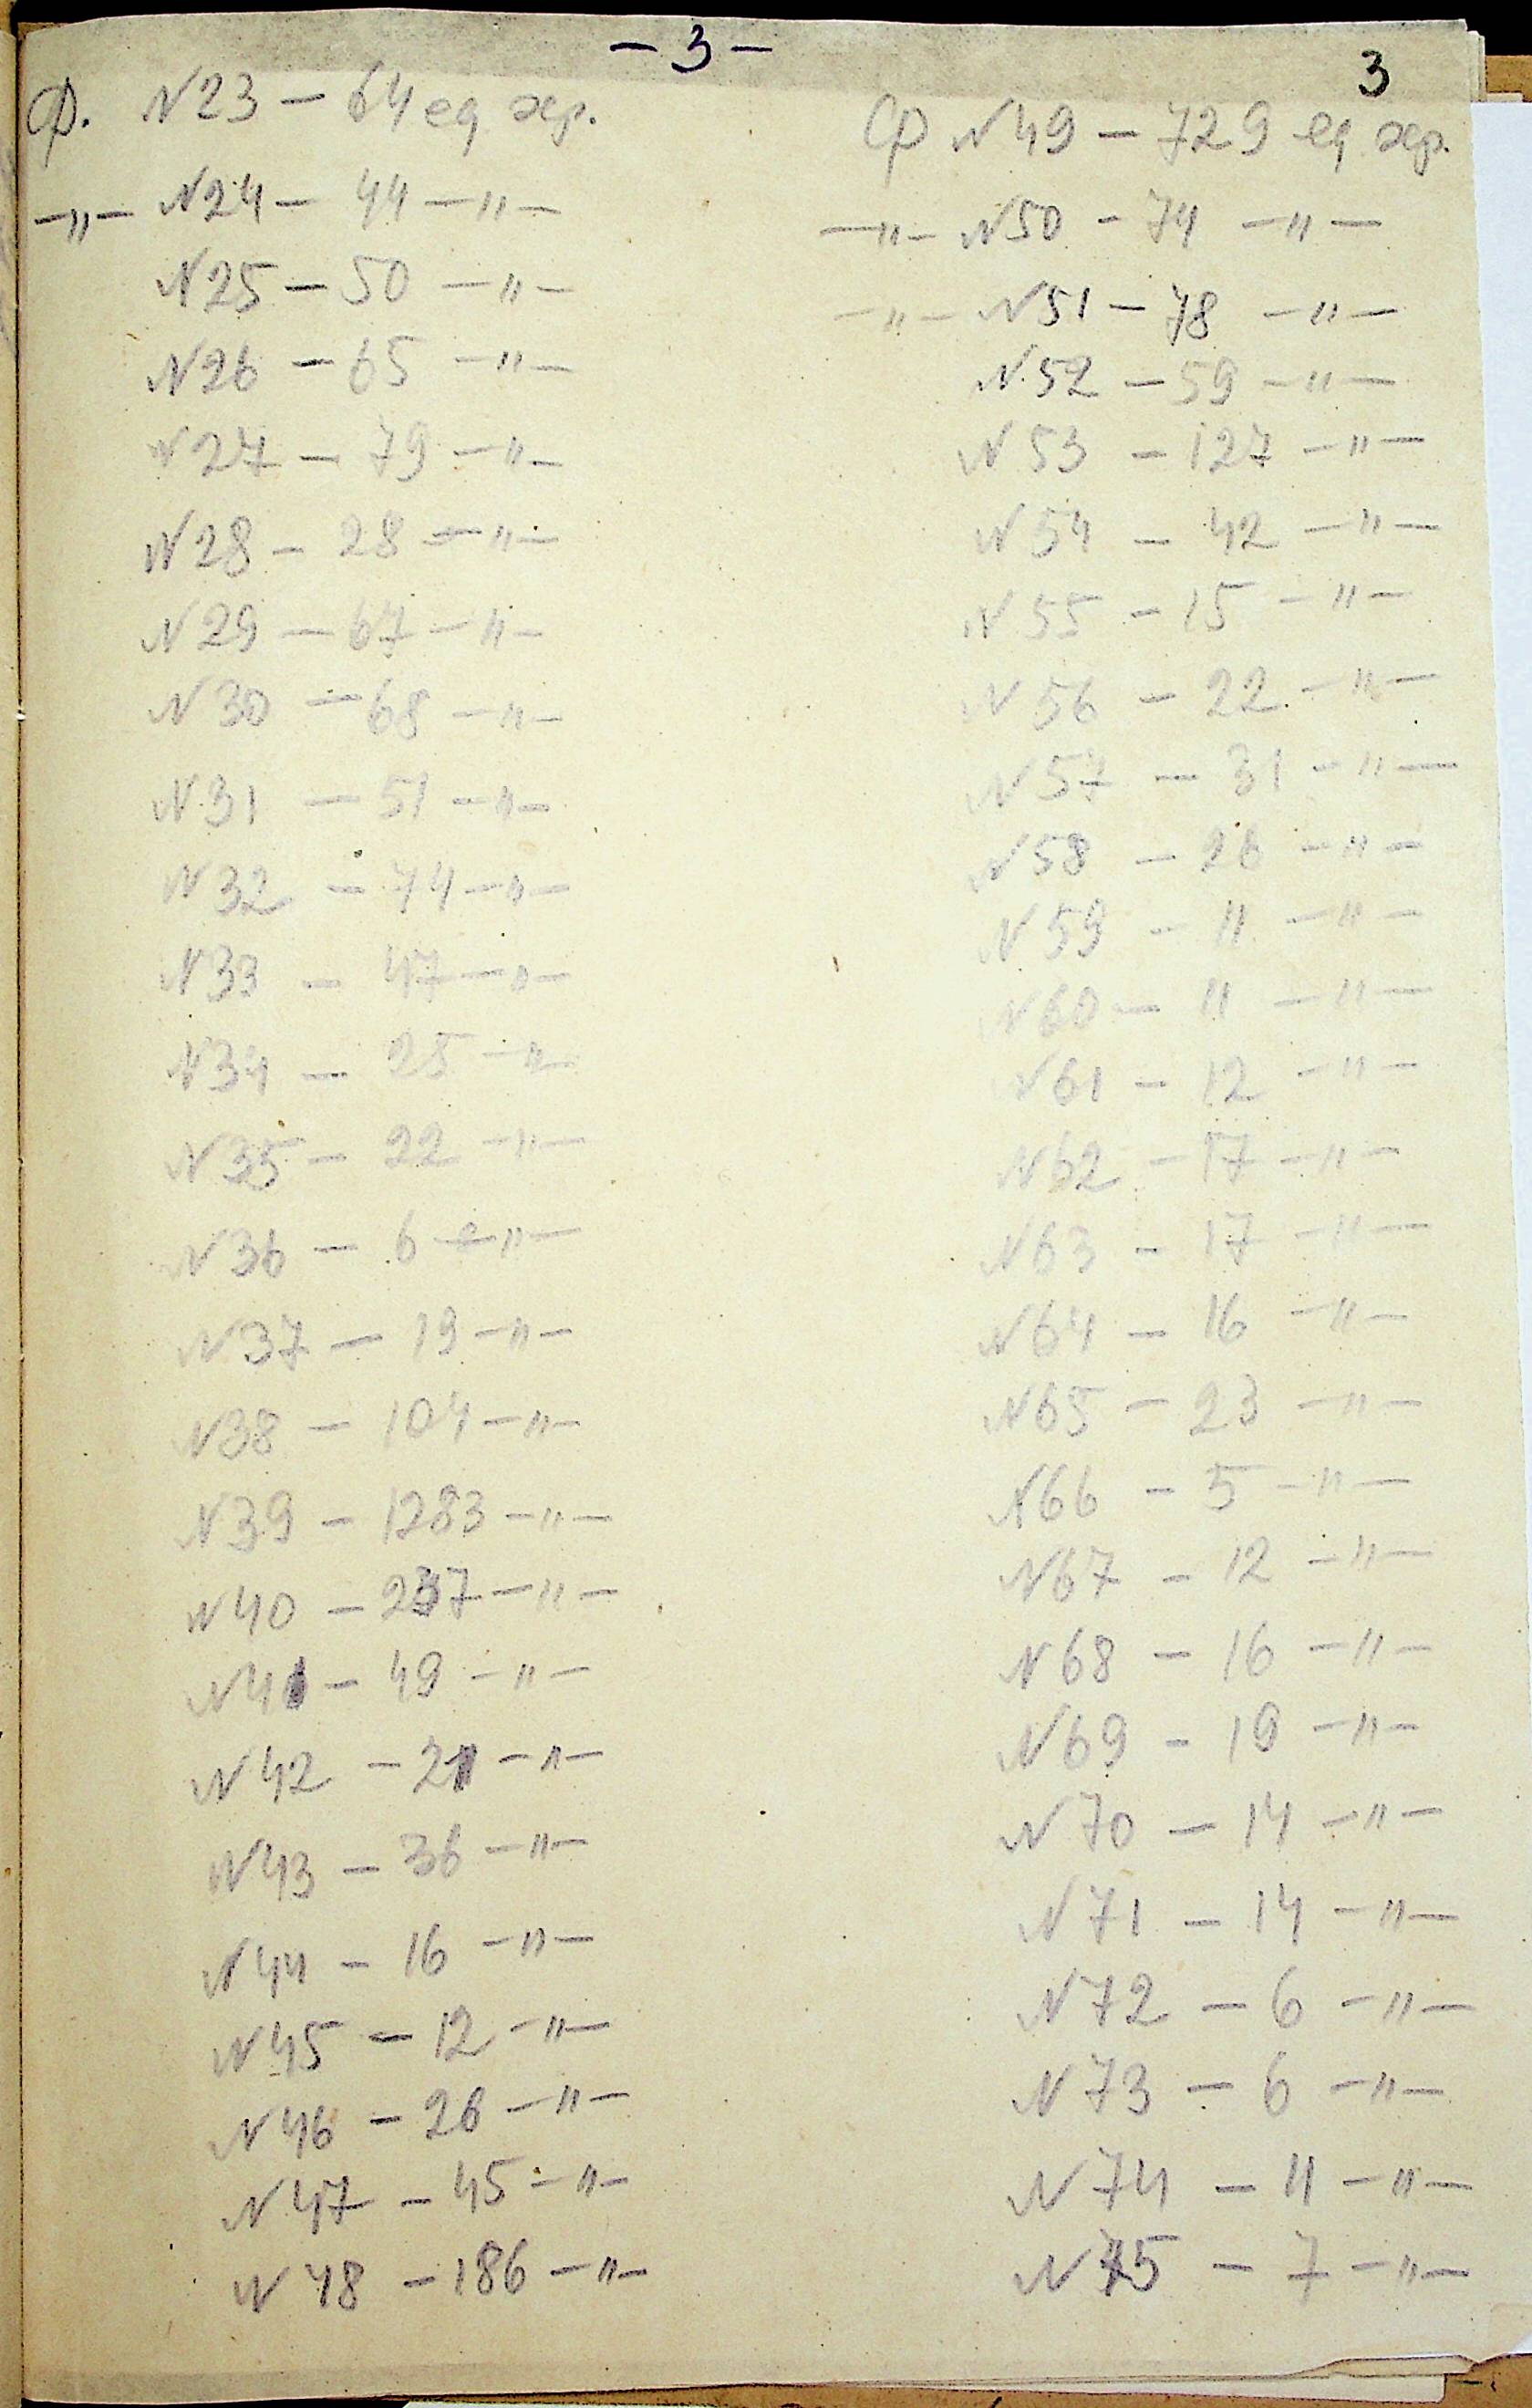 - 3 -
3
Ф. N23 - 64 ед хр.
-"- N24 - 44 -"-
N25 - 50 -"-
N26 - 65 -"-
N27 - 79 -"-
N28 - 28 -"-
N29 - 67 -"-
N30 - 68 -"-
N31 - 51 -"-
N32 - 74 -"-
N33 - 47 -"-
N34 - 25 -"-
N35 - 22 -"-
N36 - 6 -"-
N37 - 19 -"-
N38 - 104 -"-
N39 - 1283 -"-
N40 - 237 -"-
N41 - 49 -"-
N42 - 21 -"-
N43 - 36 -"-
N44 - 16 -"-
N45 - 12 -"-
N46 - 26 -"-
N47 - 45 -"-
N48 - 186 -"-
Ф N49 - 729 ед хр.
-"- N50 - 74 -"-
-"- N51 - 78 -"-
N52 - 59 -"-
N53 - 127 -"-
N54 - 42 -"-
N55 - 15 -"-
N56 - 22 -"-
N57 - 31 -"-
N58 - 26 -"-
N59 - 11 -"-
N60 - 11 -"-
N61 - 12 -"-
N62 - 17 -"-
N63 - 17 -"-
N64 - 16 -"-
N65 - 23 -"-
N66 - 5 -"-
N67 - 12 -"-
N68 - 16 -"-
N69 - 19 -"-
N70 - 14 -"-
N71 - 14 -"-
N72 - 6 -"-
N73 - 6 -"-
N74 - 11 -"-
N75 - 7 -"-